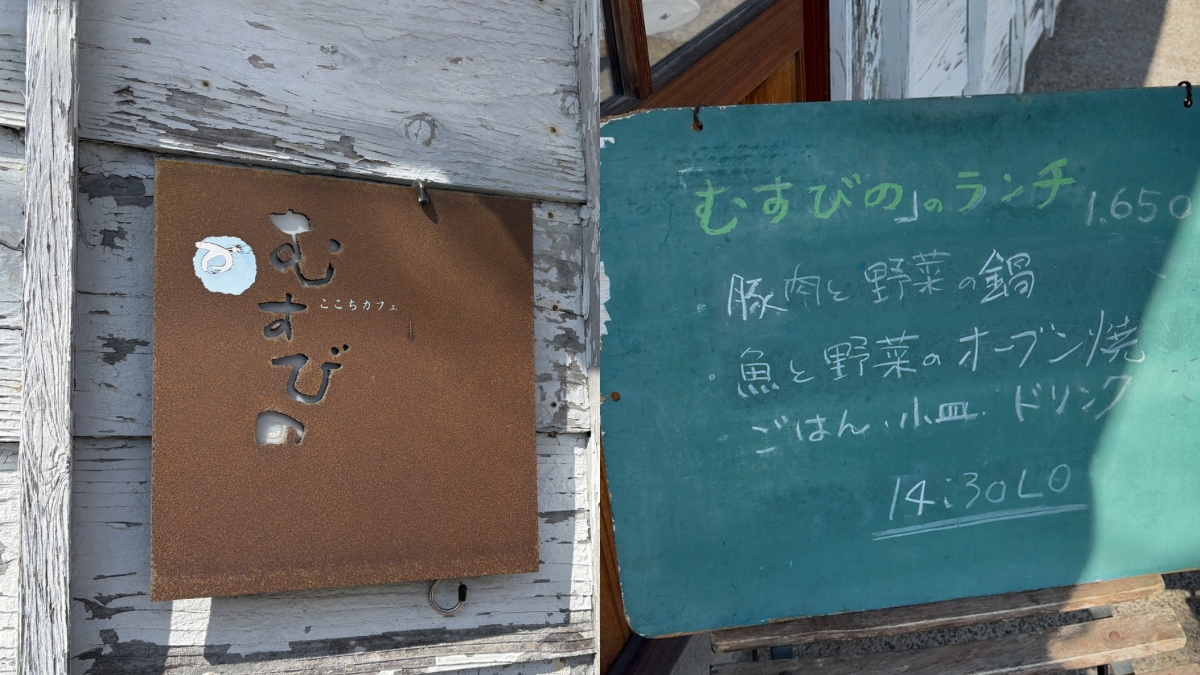 むすびの
ここちカフェ
むすびの」のランチ 1.650
豚肉と野菜の鍋
・魚と野菜のオーブン焼
ごはん・小皿・ドリンク
14:30LO